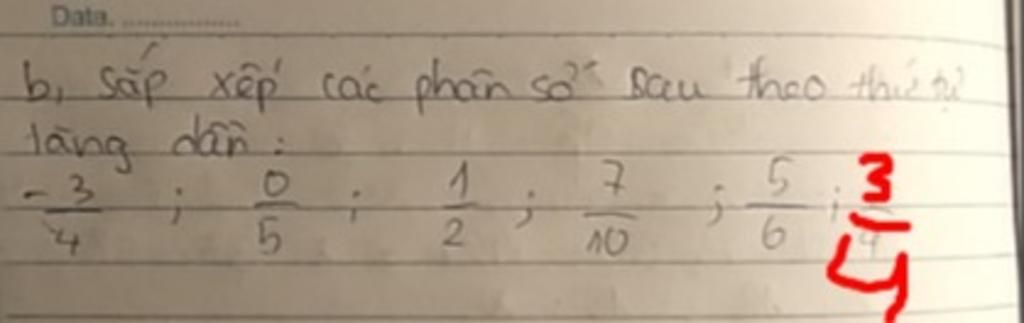 Date. ................
b, sắp xếp các phân số sau theo thứ tự
tăng dần:
-3/4 ; 0/5 ; 1/2 ; 7/10 ; 5/6 ; 3/4